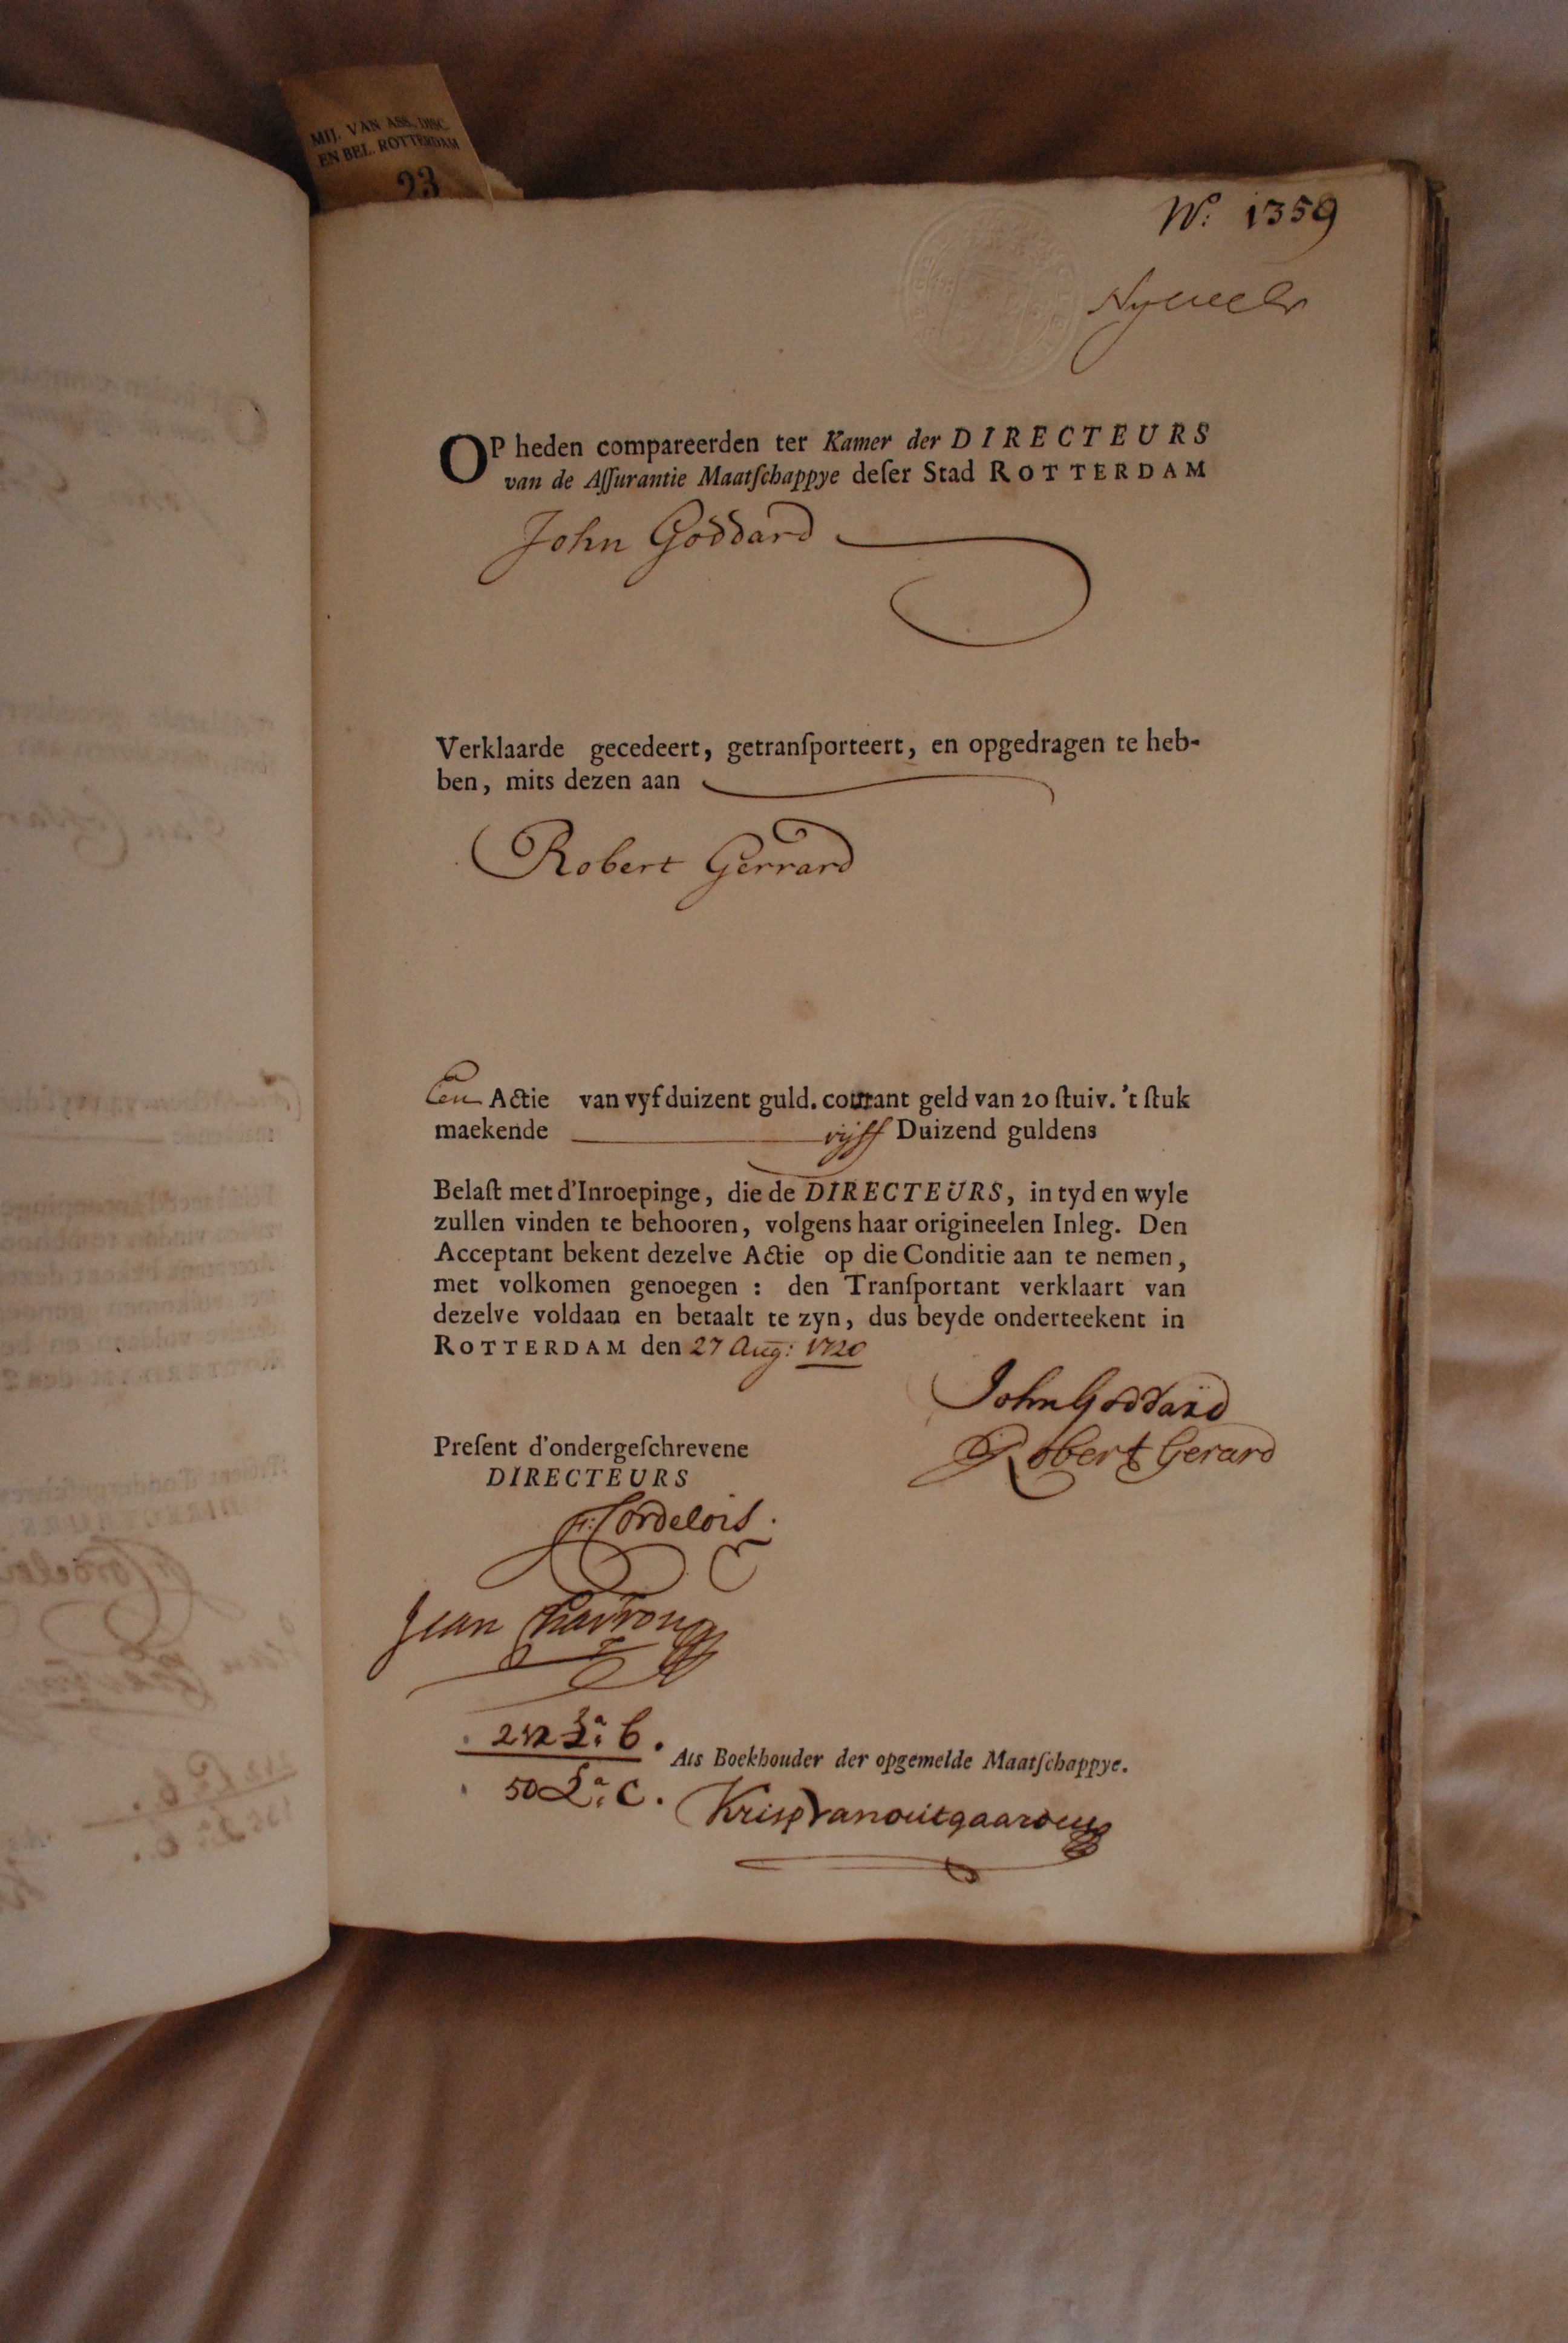 MIJ. VAN ASS., DISC.
EN BEL. ROTTERDAM
23
No: 1359
OP heden compareerden ter Kamer der DIRECTEURS
van de Aſſurantie Maatſchappye deſer Stad ROTTERDAM
John Goddard
Verklaarde gecedeert, getranſporteert, en opgedragen te heb-
ben, mits dezen aan
Robert Gerrard
Een Actie van vyf duizent guld. courant geld van 20 ſtuiv. 't ſtuk
maekende vijff Duizend guldens
Belaſt met d'Inroepinge, die de DIRECTEURS, in tyd en wyle
zullen vinden te behooren, volgens haar origineelen Inleg. Den
Acceptant bekent dezelve Actie op die Conditie aan te nemen,
met volkomen genoegen : den Tranſportant verklaart van
dezelve voldaan en betaalt te zyn, dus beyde onderteekent in
ROTTERDAM den 27 Aug: 1720
John Goddard
Robert Gerard
Preſent d'ondergeſchrevene
DIRECTEURS
F: Cordelois.
Jean
La: b.
Als Boekhouder der opgemelde Maatſchappye.
50 La: C.
Krisp Vanoutgaarden